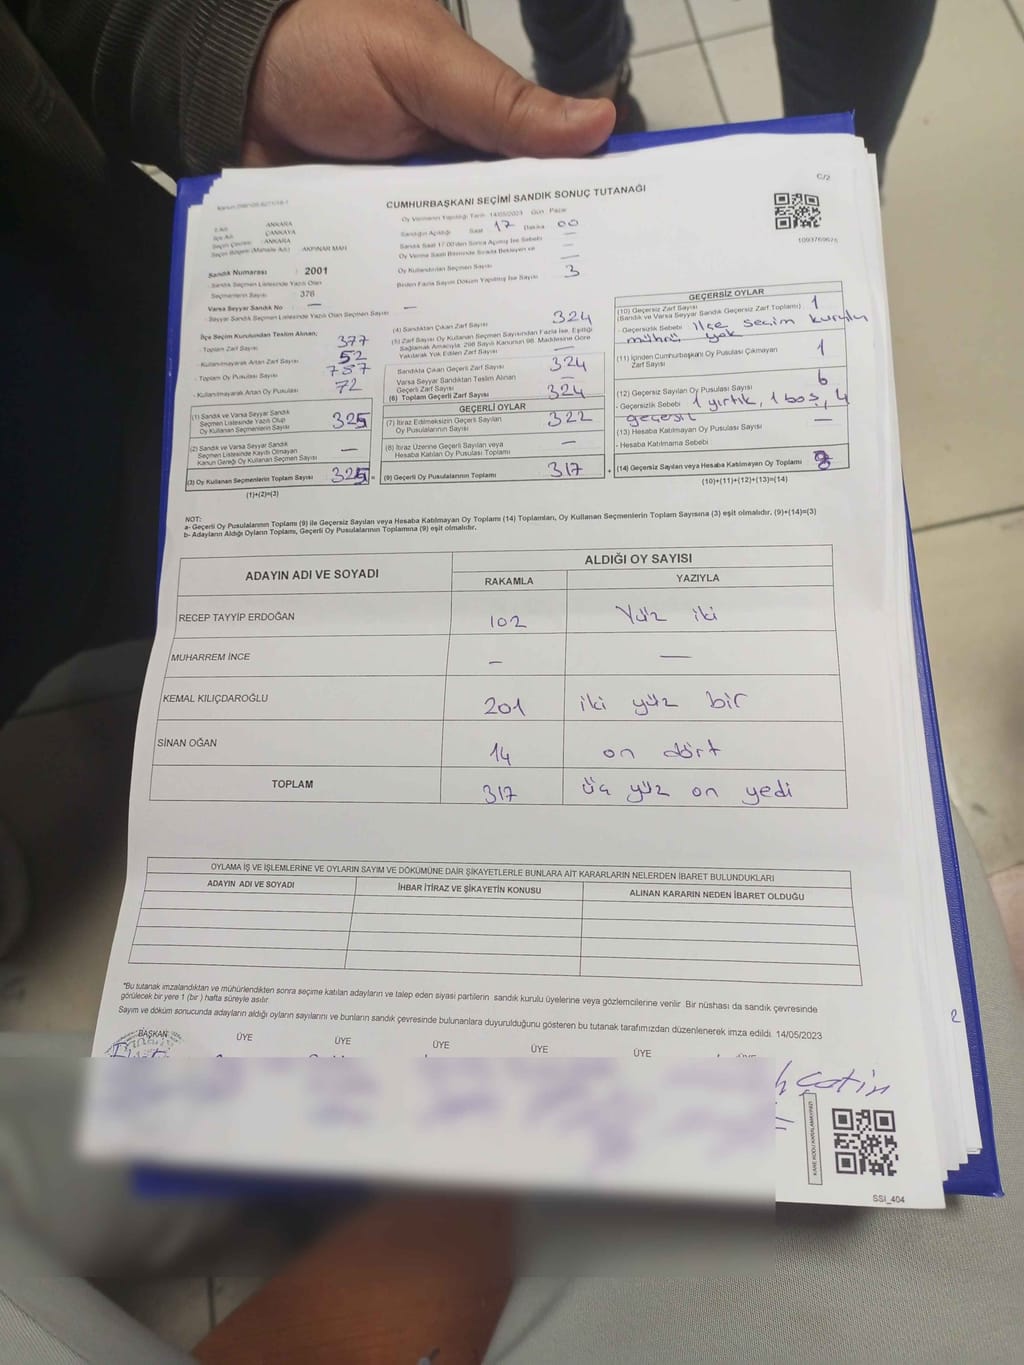 C/2
CUMHURBAŞKANI SEÇİMİ SANDIK SONUÇ TUTANAĞI
Oy Vermenin Yapıldığı Tarih: 14/05/2023 Gün: Pazar
Sandığın Açıldığı Saat 17 Dakika 00
1093769675
İli Adı : ANKARA
İlçe Adı : ÇANKAYA
Seçim Çevresi : ANKARA
Seçim Bölgesi (Mahalle Adı) : AKPINAR MAH.
Sandık Saat 17:00'den Sonra Açılmış İse Sebebi —
Oy Verme Saati Bitiminde Sırada Bekleyen ve —
Oy Kullandırılan Seçmen Sayısı —
Birden Fazla Sayım Döküm Yapılmış İse Sayısı 3
Sandık Numarası : 2001
- Sandık Seçmen Listesinde Yazılı Olan
Seçmenlerin Sayısı : 376
Varsa Seyyar Sandık No —
- Seyyar Sandık Seçmen Listesinde Yazılı Olan Seçmen Sayısı —
İlçe Seçim Kurulundan Teslim Alınan;
- Toplam Zarf Sayısı 377
- Kullanılmayarak Artan Zarf Sayısı 52
- Toplam Oy Pusulası Sayısı
- Kullanılmayarak Artan Oy Pusulası 72
(1) Sandık ve Varsa Seyyar Sandık
Seçmen Listesinde Yazılı Olup
Oy Kullanan Seçmenlerin Sayısı 325
(2) Sandık ve Varsa Seyyar Sandık
Seçmen Listesinde Kayıtlı Olmayan
Kanun Gereği Oy Kullanan Seçmen Sayısı —
(3) Oy Kullanan Seçmenlerin Toplam Sayısı 325 =
(1)+(2)=(3)
(4) Sandıktan Çıkan Zarf Sayısı 324
(5) Zarf Sayısı Oy Kullanan Seçmen Sayısından Fazla İse, Eşitliği
Sağlamak Amacıyla, 298 Sayılı Kanunun 98. Maddesine Göre
Yakılarak Yok Edilen Zarf Sayısı —
Sandıkta Çıkan Geçerli Zarf Sayısı 324
Varsa Seyyar Sandıktan Teslim Alınan
Geçerli Zarf Sayısı —
(6) Toplam Geçerli Zarf Sayısı 324
GEÇERLİ OYLAR
(7) İtiraz Edilmeksizin Geçerli Sayılan
Oy Pusulalarının Sayısı 322
(8) İtiraz Üzerine Geçerli Sayılan veya
Hesaba Katılan Oy Pusulası Toplamı —
(9) Geçerli Oy Pusulalarının Toplamı 317 +
GEÇERSİZ OYLAR
(10) Geçersiz Zarf Sayısı
(Sandık ve Varsa Seyyar Sandık Geçersiz Zarf Toplamı) 1
- Geçersizlik Sebebi ilçe seçim kurulu
mührü yok
(11) İçinden Cumhurbaşkanı Oy Pusulası Çıkmayan
Zarf Sayısı 1
(12) Geçersiz Sayılan Oy Pusulası Sayısı 6
- Geçersizlik Sebebi 1 yırtık, 1 boş, 4
geçersiz
(13) Hesaba Katılmayan Oy Pusulası Sayısı —
- Hesaba Katılmama Sebebi
(14) Geçersiz Sayılan veya Hesaba Katılmayan Oy Toplamı 8
(10)+(11)+(12)+(13)=(14)
NOT:
a- Geçerli Oy Pusulalarının Toplamı (9) ile Geçersiz Sayılan veya Hesaba Katılmayan Oy Toplamı (14) Toplamları, Oy Kullanan Seçmenlerin Toplam Sayısına (3) eşit olmalıdır. (9)+(14)=(3)
b- Adayların Aldığı Oyların Toplamı, Geçerli Oy Pusulalarının Toplamına (9) eşit olmalıdır.
ADAYIN ADI VE SOYADI ALDIĞI OY SAYISI
RAKAMLA YAZIYLA
RECEP TAYYİP ERDOĞAN 102 Yüz iki
MUHARREM İNCE — —
KEMAL KILIÇDAROĞLU 201 iki yüz bir
SİNAN OĞAN 14 on dört
TOPLAM 317 üç yüz on yedi
OYLAMA İŞ VE İŞLEMLERİNE VE OYLARIN SAYIM VE DÖKÜMÜNE DAİR ŞİKAYETLERLE BUNLARA AİT KARARLARIN NELERDEN İBARET BULUNDUKLARI
ADAYIN ADI VE SOYADI İHBAR İTİRAZ VE ŞİKAYETİN KONUSU ALINAN KARARIN NEDEN İBARET OLDUĞU
*Bu tutanak imzalandıktan ve mühürlendikten sonra seçime katılan adayların ve talep eden siyasi partilerin sandık kurulu üyelerine veya gözlemcilerine verilir. Bir nüshası da sandık çevresinde
görülecek bir yere 1 (bir) hafta süreyle asılır.
Sayım ve döküm sonucunda adayların aldığı oyların sayılarını ve bunların sandık çevresinde bulunanlara duyurulduğunu gösteren bu tutanak tarafımızdan düzenlenerek imza edildi. 14/05/2023
2
BAŞKAN ÜYE ÜYE ÜYE ÜYE ÜYE ÜYE
Çetin
SSI_404